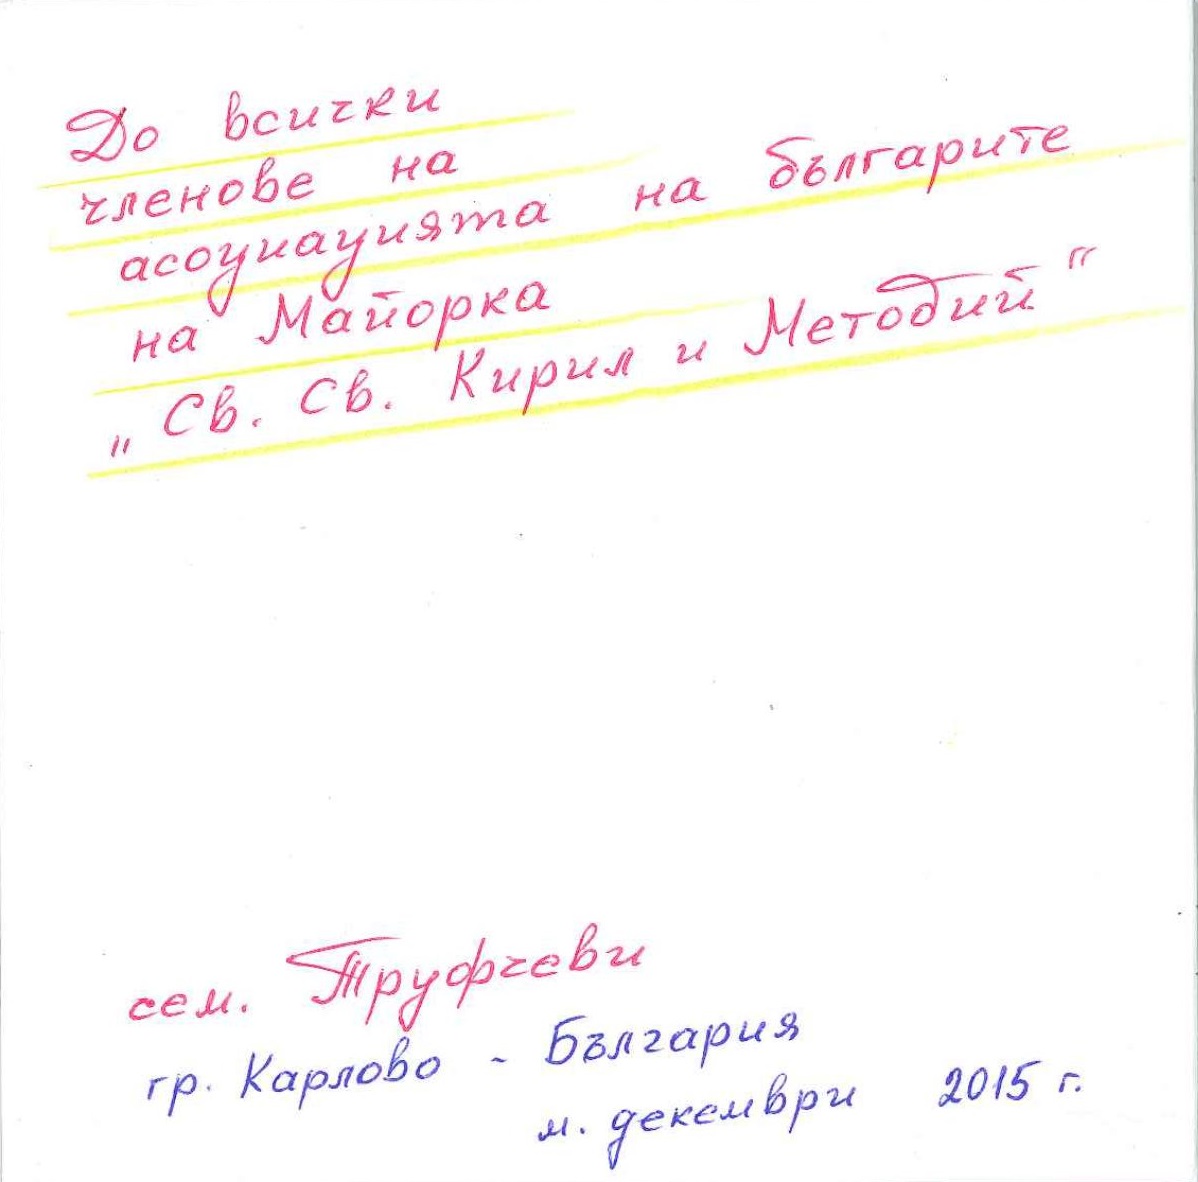 До всички
членове на
асоциацията на българите
на Майорка
„Св. Св. Кирил и Методий“
сем. Труфчеви
гр. Карлово - България
м. декември 2015 г.